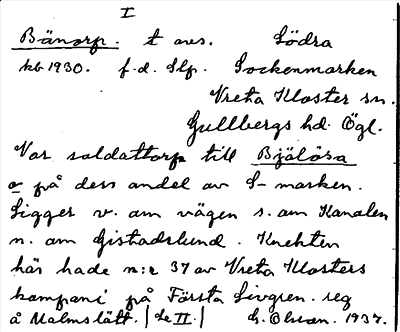 I
Bänorp. t avs. Södra
kb 1930. f.d. Slp. Sockenmarken
Vreta Kloster sn.
Gullbergs hd. Ögl.
Var soldattorp till Bjälösa
o på dess andel av S-marken.
Ligger v. om vägen s. om Kanalen
n. om Gistadslund. Knekten
här hade n:r 37 av Vreta Klosters
kompani på Första Livgren. reg
å Malmslätt. | Se II. | G. Olsson. 1937.